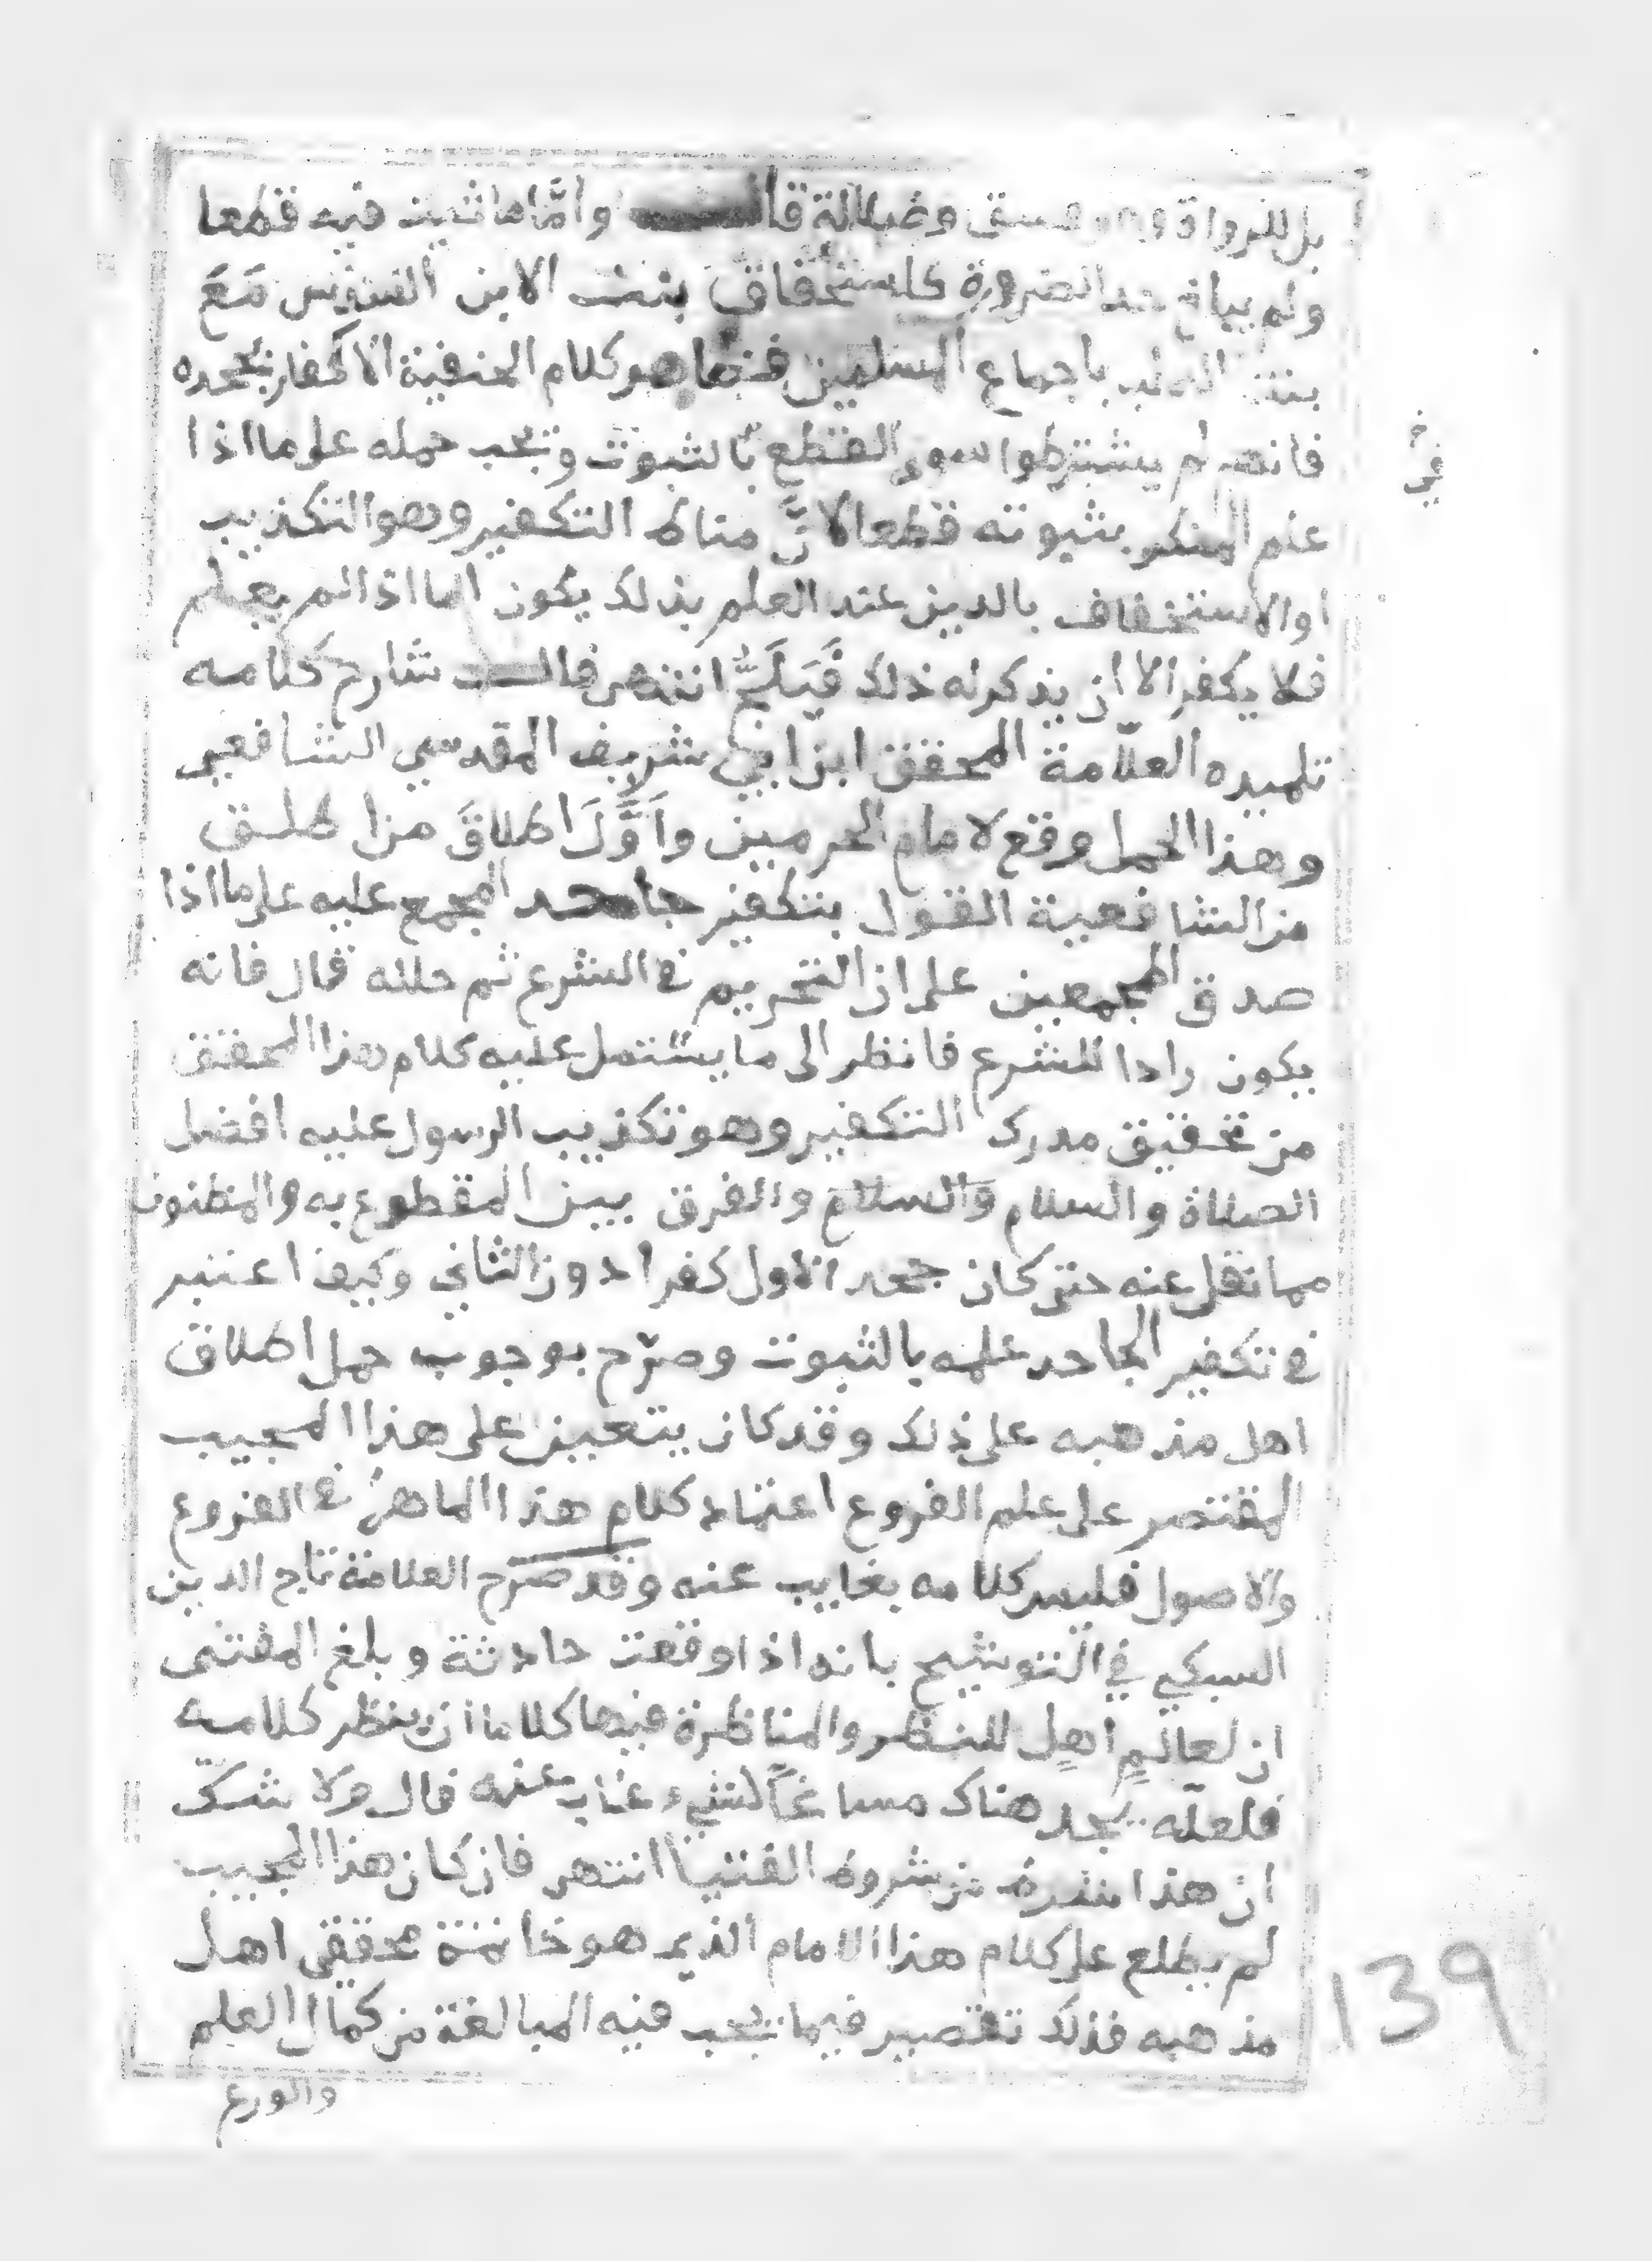 بل للرواة وهو فسق وضلالة قال وأمّا ما ثبت فيه قطعا
ولم يبلغ حد الضرورة كاستحقاق بنت الابن السدس مَعَ
بنت الصلب باجماع المسلمين فظاهر كلام الحنفية الاكفار بجحده
فانهم لم يشترطوا سوى القطع بالثبوت ويجب حمله على ما اذا
علم المنكر بثبوته قطعا لانَّ مناط التكفير وهو التكذيب
او الاستخفاف بالدين عند العلم بذلك يكون اما اذا لم يعلم
فلا يكفر الا ان يذكر له ذلك فَيَلَجَّ انتهى قال شارح كلامه
تلميذه العلّامة المحقق ابن ابي شريف المقدسي الشافعي
وهذا الحمل وقع لامام الحرمين وأوَّلَ اطلاقَ من اطلق
من الشافعية القول بتكفير جاحد المجمع عليه على ما اذا
صدق المجمعين على ان التحريم في الشرع ثم حلله قال فانه
يكون رادا للشرع فانظر الى ما يشتمل عليه كلام هذا المحقق
من تحقيق مدرك التكفير وهو تكذيب الرسول عليه افضل
الصلاة والسلام والسلام والفرق بين المقطوع به والمظنون
مما نقل عنه حتى كان جحد الاول كفرا دون الثاني وكيف اعتبر
في تكفير الجاحد علمه بالثبوت وصرّح بوجوب حمل اطلاق
اهل مذهبه على ذلك وقد كان يتعين على هذا المجيب
المقتصر على علم الفروع اعتماد كلام هذا الماهر في الفروع
والاصول فليس كلامه بغايب عنه وقد صرح العلامة تاج الدين
السبكي في التوشيح بانه اذا وقعت حادثة وبلغ المفتى
ان لعالمٍ اهلٍ للنظر والمناظرة فيها كلاما ان ينظر كلامه
فلعلّه يجد هناك مساغًا لشيء غاب عنه قال ولا شكّ
ان هذا شرط من شروط الفتيا انتهى فان كان هذا المجيب
لم يطلع على كلام هذا الامام الذي هو خاتمة محققي اهل
مذهبه فذلك تقصير فيما يجب فيه المبالغة من كمال العلم
والورع
في
139